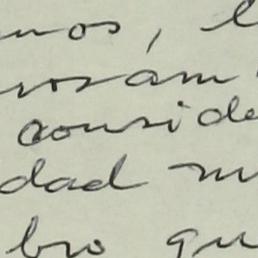 mos, l
rosam
conside
dad m
bro qu